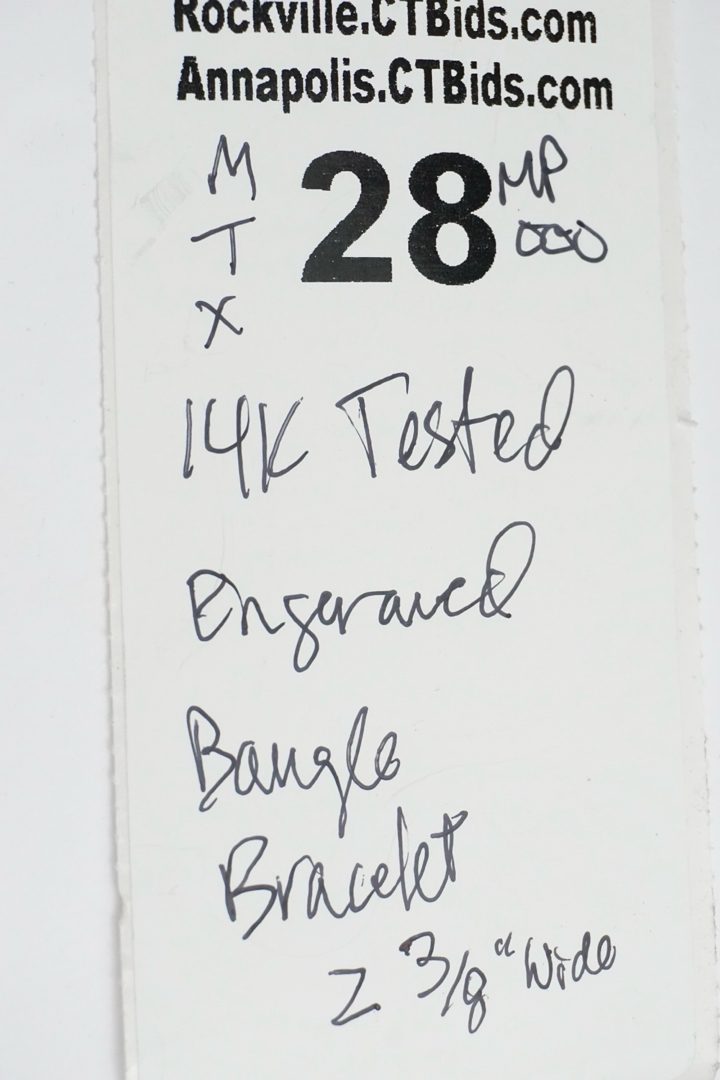 Rockville.CTBids.com
Annapolis.CTBids.com
M 28 MP
T 000
X
14K Tested
Engeraved
Bangle
Bracelet
2 3/8" Wide